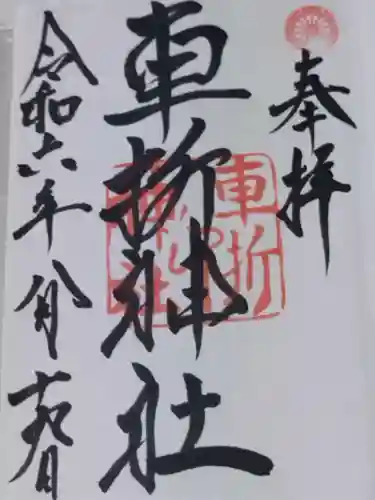 奉拝
車折神社
車折
神社
令和六年八月十九日